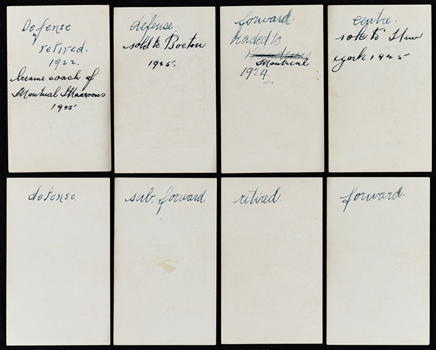 Defense
retired.
1922.
became coach of
Montreal Maroons
1925
defense.
sold to Boston
1925.
forward.
traded to
Montreal
1924.
centre.
sold to New
york 1925
defense.
sub. forward
retired.
forward.